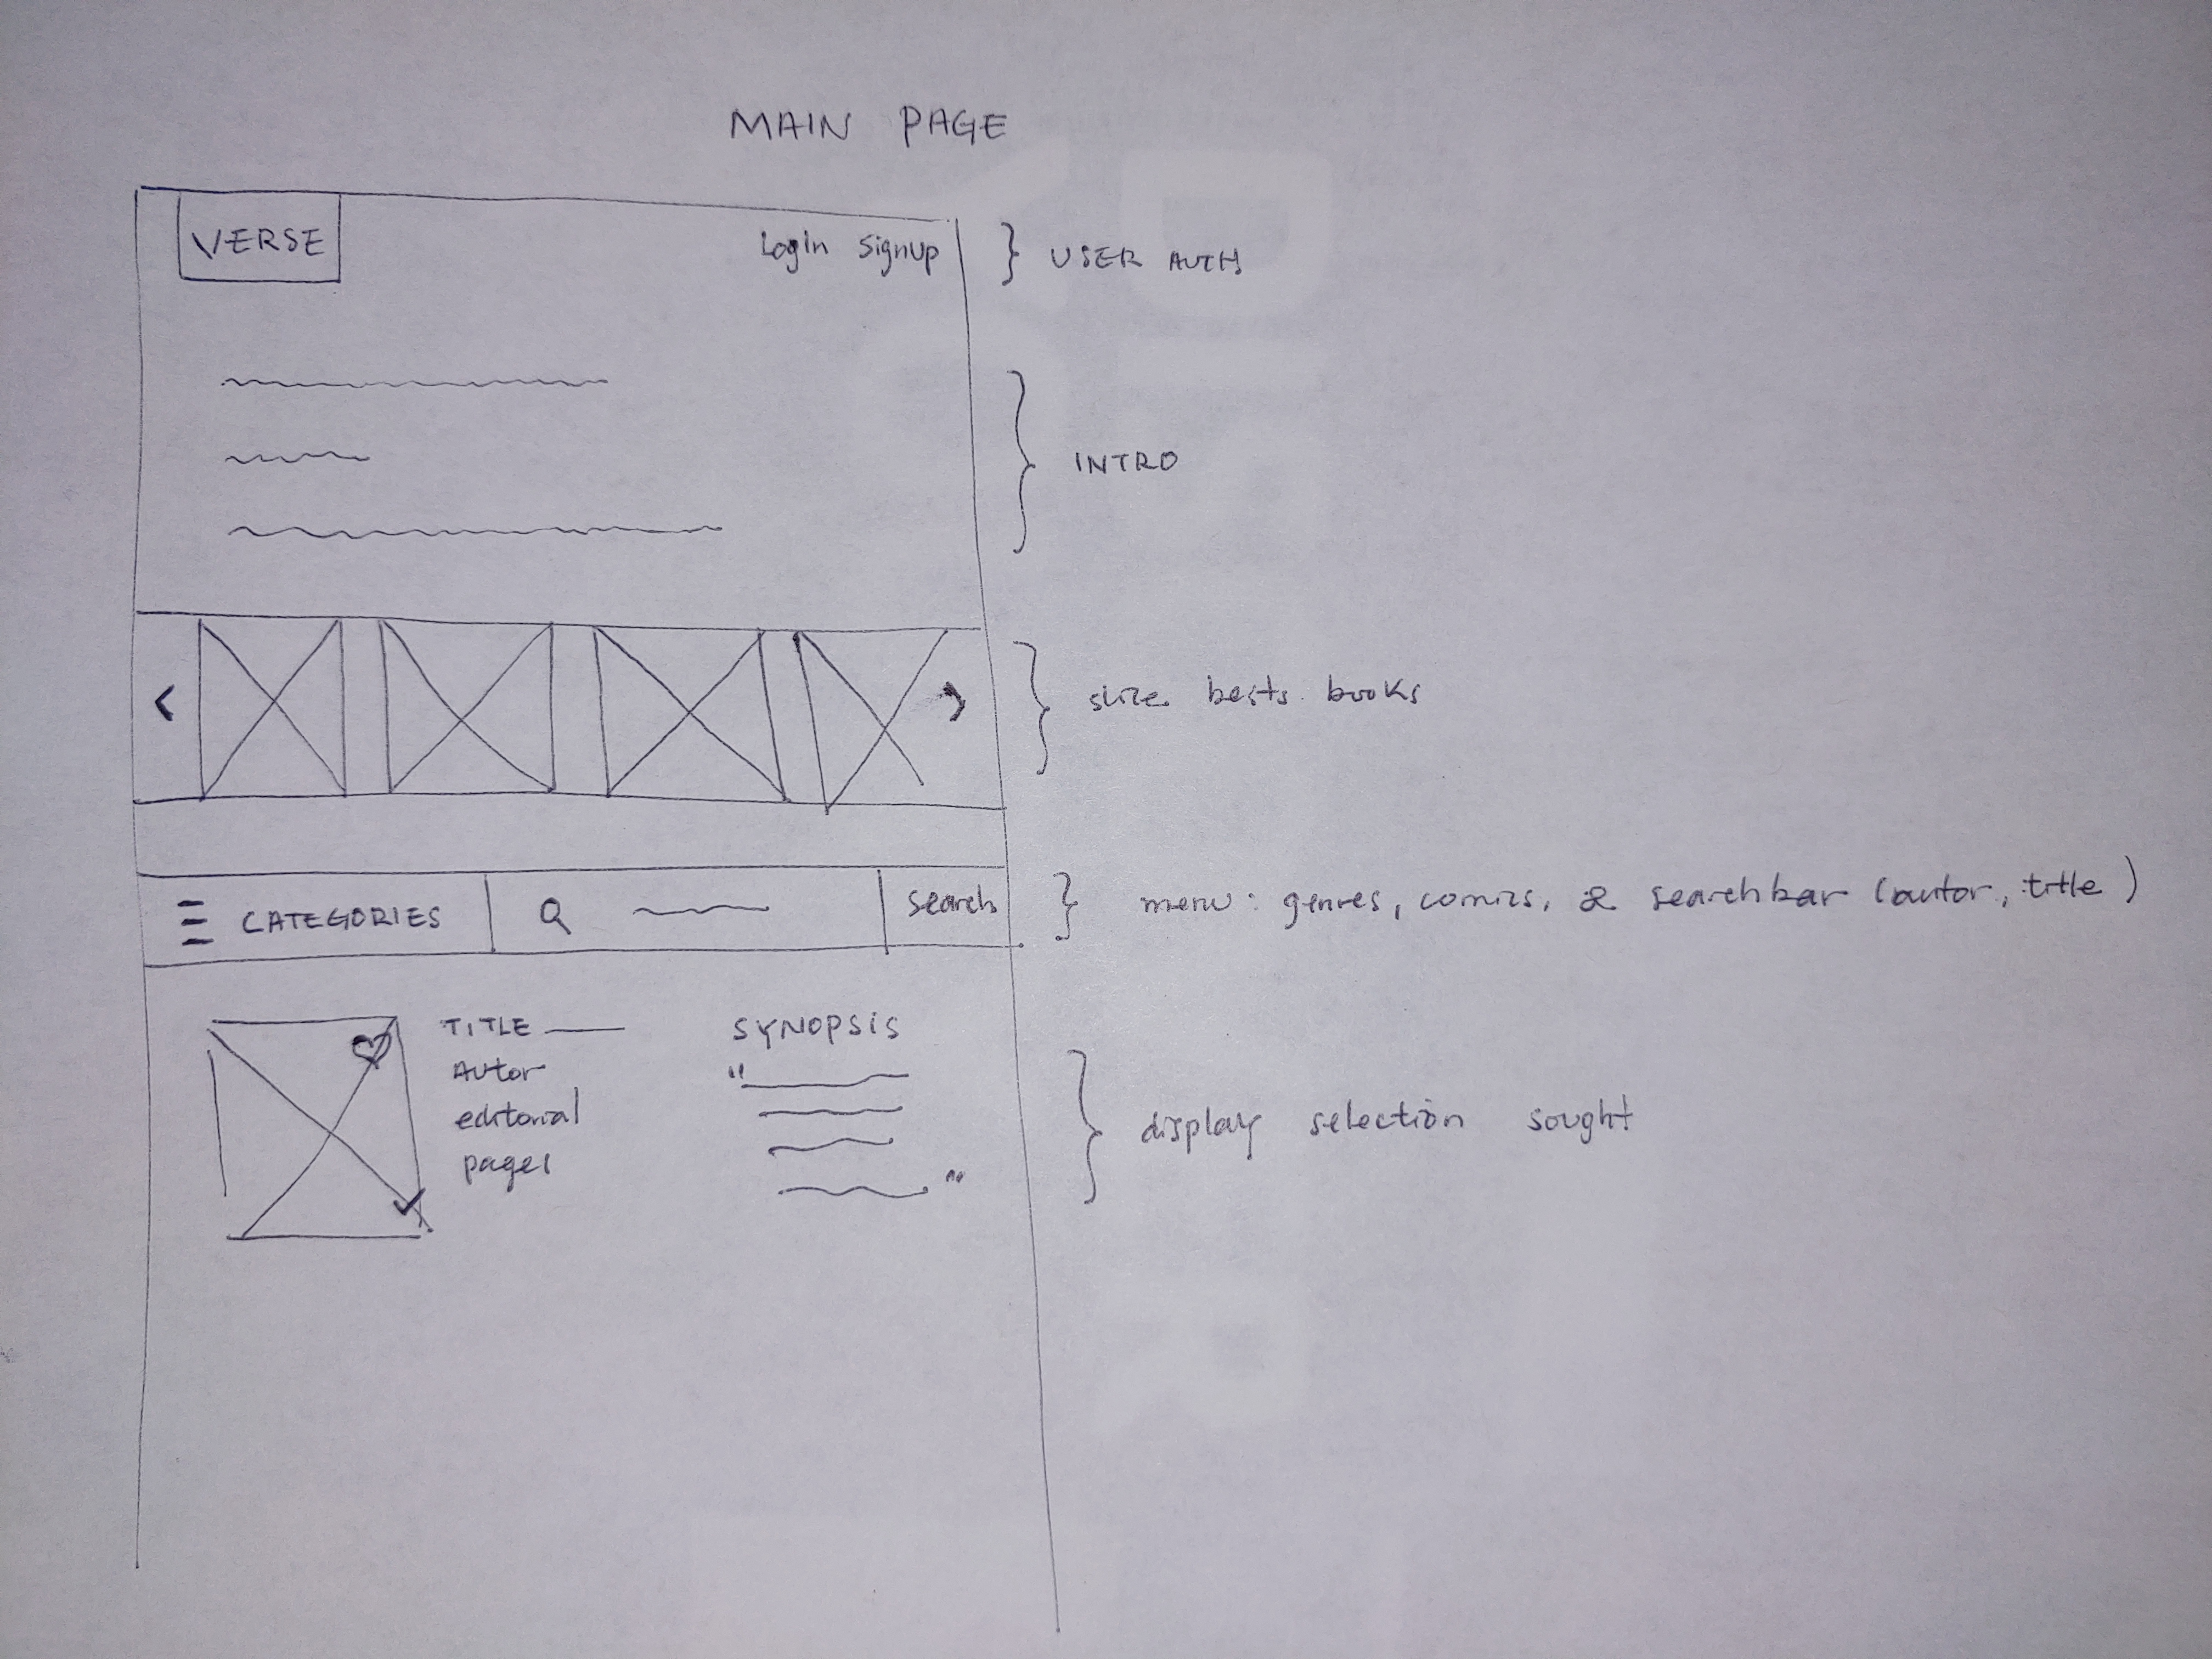 MAIN PAGE
VERSE
Login Signup
} USER AUTH
INTRO
< >
bests books
CATEGORIES
Search
} menu: genres, comics, & searchbar (autor, title)
TITLE
Autor
editorial
pages
SYNOPSIS
" "
display selection sought